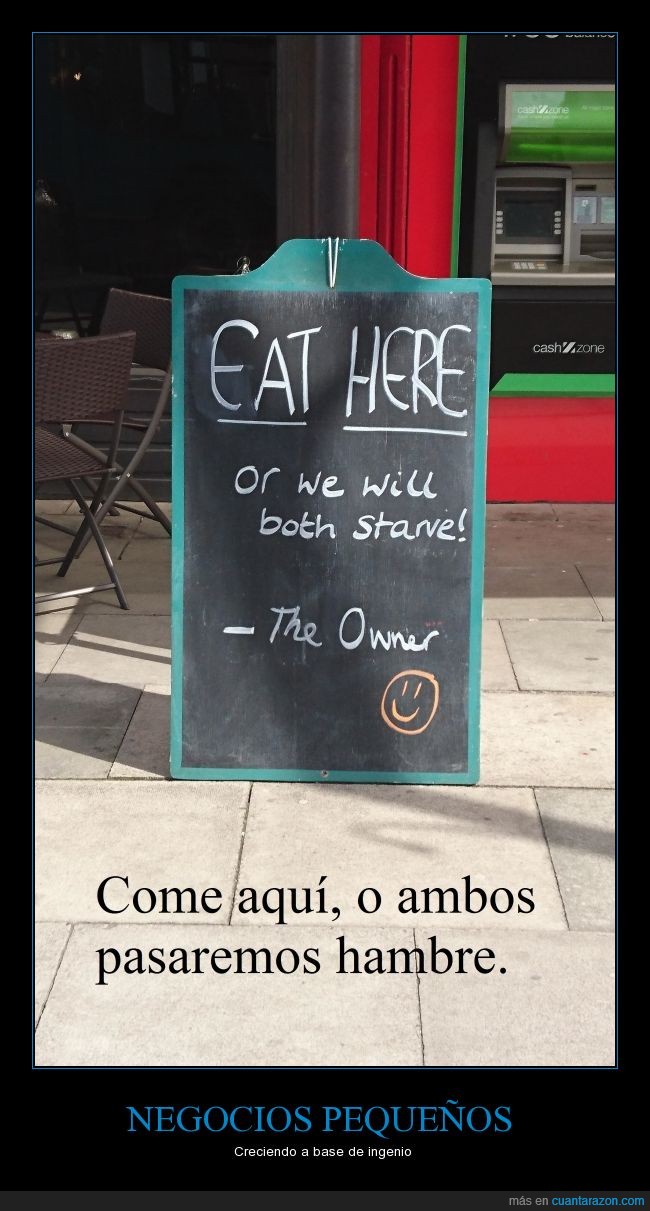 balance
cash zone
cash zone
EAT HERE
Or we will
both starve!
- The Owner
Come aquí, o ambos
pasaremos hambre.
NEGOCIOS PEQUEÑOS
Creciendo a base de ingenio
más en cuantarazon.com